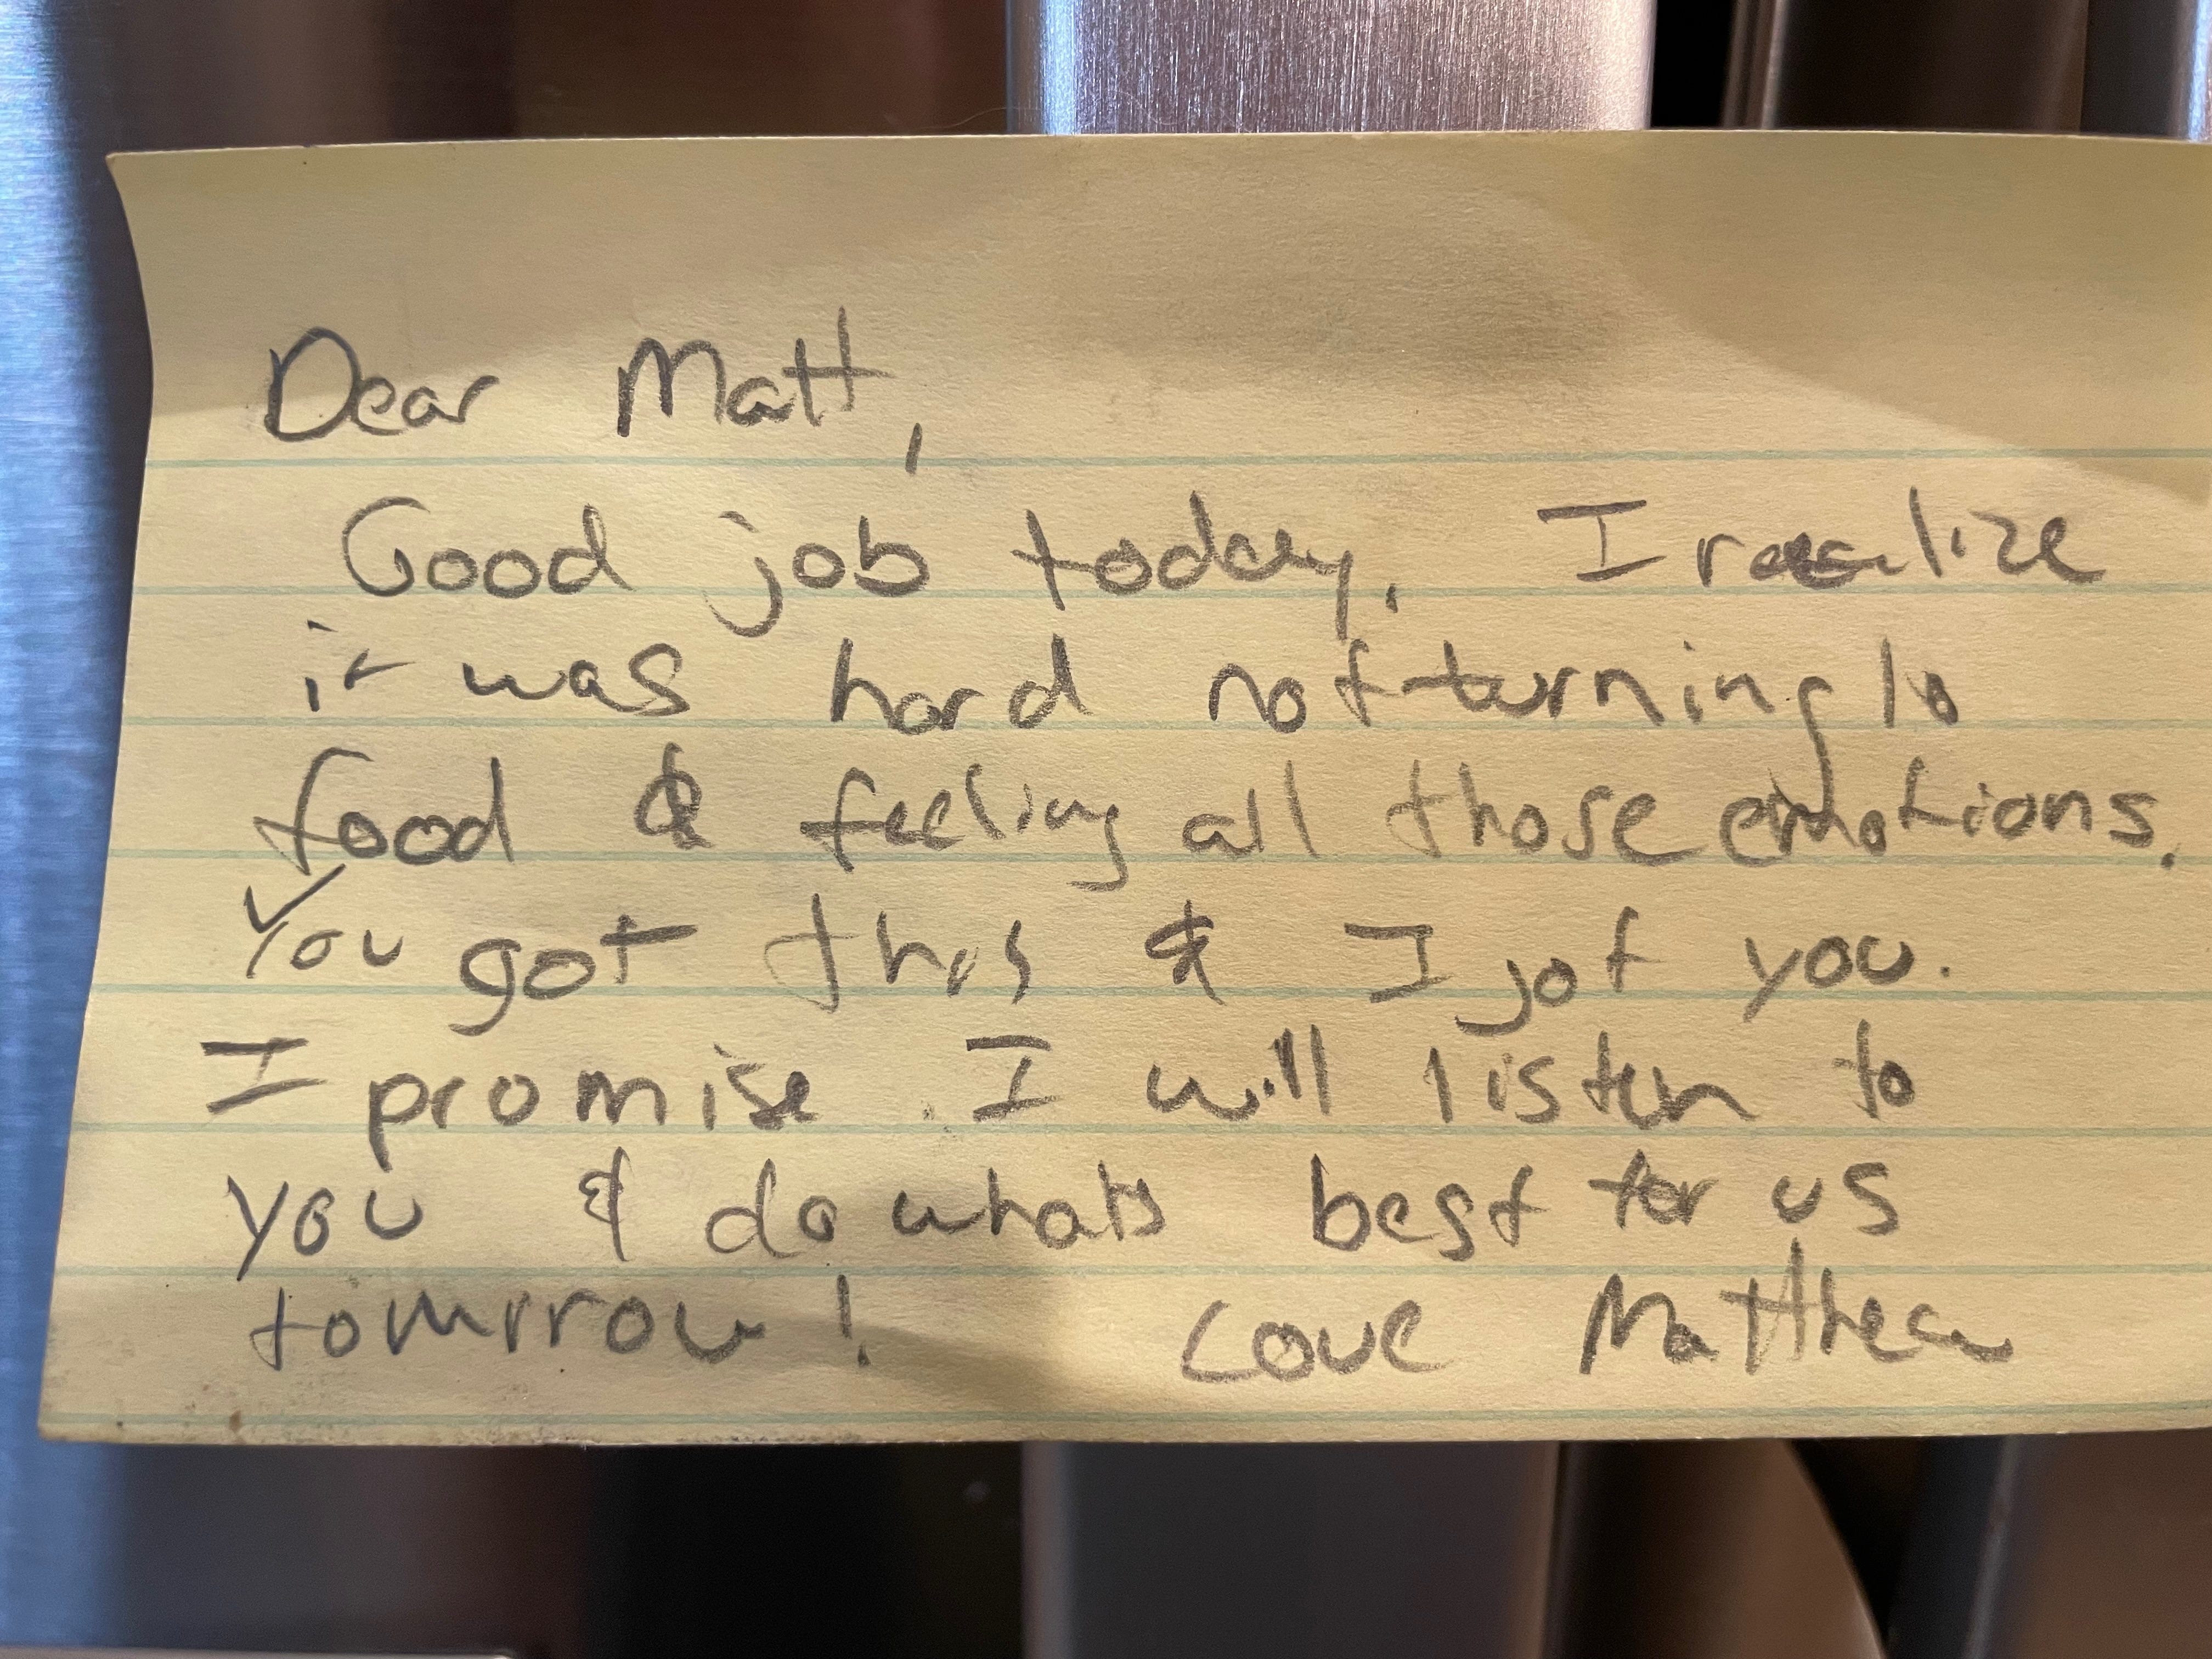 Dear Matt,
Good job today. I realize
it was hard not turning to
food & feeling all those emotions.
You got this & I got you.
I promise. I will listen to
you & do whats best for us
tomrrow! Love Matthew